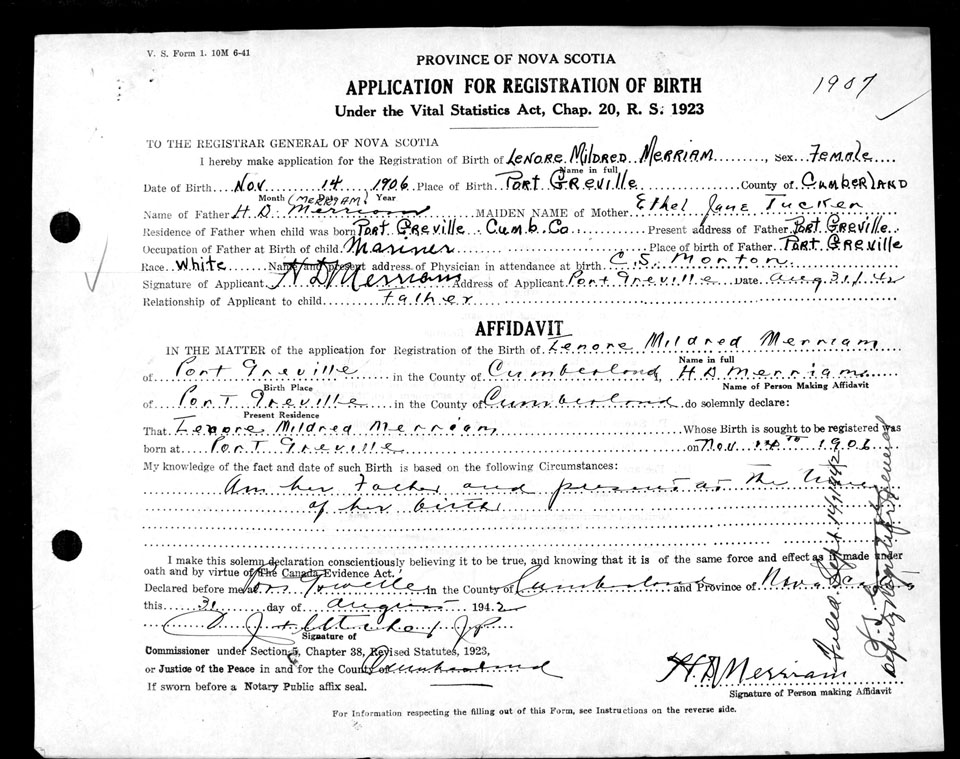 V. S. Form 1. 10M 6-41
PROVINCE OF NOVA SCOTIA
1907
APPLICATION FOR REGISTRATION OF BIRTH
Under the Vital Statistics Act, Chap. 20, R. S. 1923
TO THE REGISTRAR GENERAL OF NOVA SCOTIA
I hereby make application for the Registration of Birth of LENORE MILDRED MERRIAM, Sex FEMALE
Name in full
Date of Birth Nov 14 1906 Place of Birth PORT GREVILLE County of CUMBERLAND
Month (MERRIAM) Year
Name of Father H. D. Merriam MAIDEN NAME of Mother Ethel Jane Tucker
Residence of Father when child was born Port Greville Cumb. Co Present address of Father Port Greville
Occupation of Father at Birth of child Mariner Place of birth of Father Port Greville
Race White Name and present address of Physician in attendance at birth C. S. Morton
Signature of Applicant H D Merriam Address of Applicant Port Greville Date Aug 31/42
Relationship of Applicant to child Father
AFFIDAVIT
IN THE MATTER of the application for Registration of the Birth of Lenore Mildred Merriam
Name in full
of Port Greville in the County of Cumberland, H D Merriam
Birth Place Name of Person Making Affidavit
of Port Greville in the County of Cumberland do solemnly declare:
Present Residence
That Lenore Mildred Merriam Whose Birth is sought to be registered was
born at Port Greville on Nov 14th 1906
My knowledge of the fact and date of such Birth is based on the following Circumstances:
Am her Father and present at the time
of her birth
I make this solemn declaration conscientiously believing it to be true, and knowing that it is of the same force and effect as if made under
oath and by virtue of The Canada Evidence Act.
Declared before me at Port Greville in the County of Cumberland and Province of Nova Scotia
this 31 day of August 1942
J P
Signature of
Commissioner under Section 5, Chapter 38, Revised Statutes, 1923,
or Justice of the Peace in and for the County of Cumberland
If sworn before a Notary Public affix seal.
H. D Merriam
Signature of Person making Affidavit
For Information respecting the filling out of this Form, see Instructions on the reverse side.
Filed Sept. 14, 1942
Deputy Registrar General